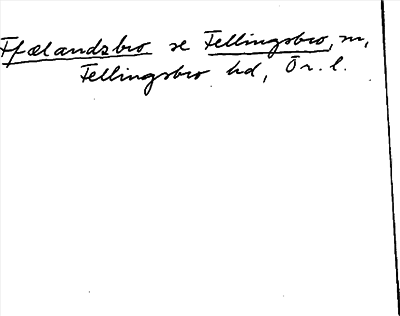 Ffælandzbro se Fellingsbro, sn,
Fellingsbro hd, Ör. l.